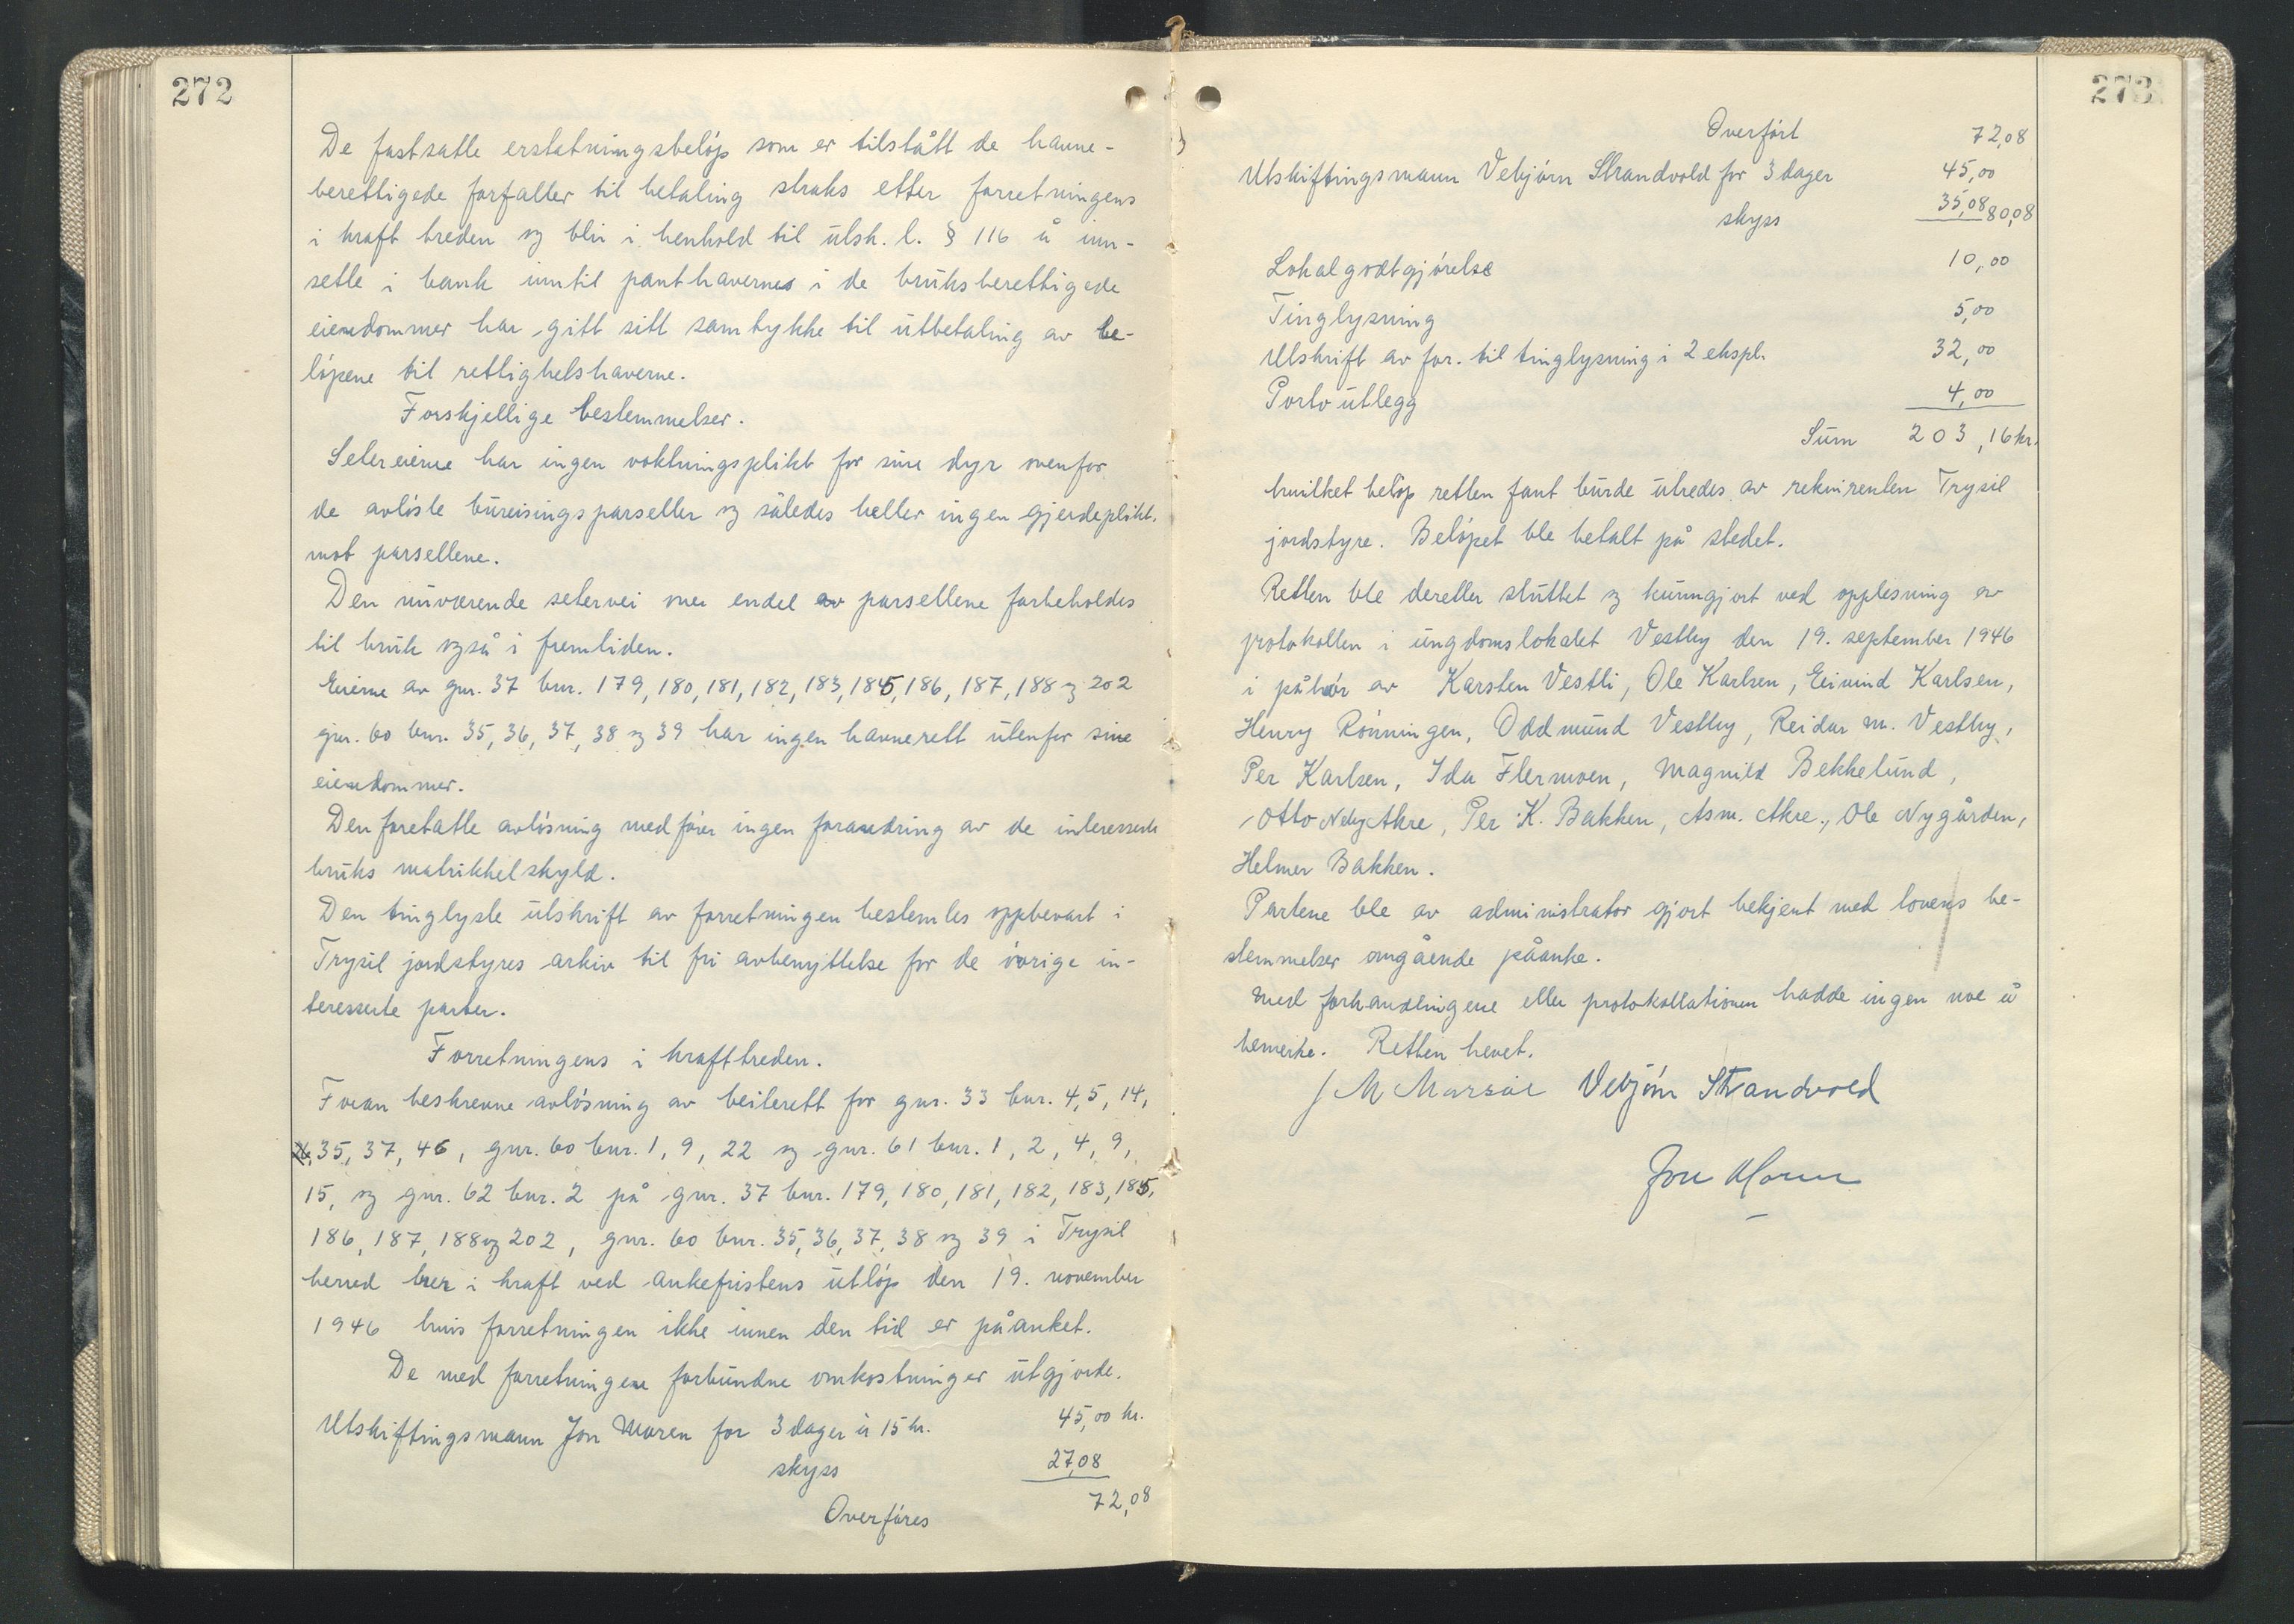 272
De fastsatte erstatningsbeløp som er tilstått de havne-
berettigede forfaller til betaling straks etter forretningens
i kraft treden og blir i henhold til utsk. l. § 116 å inn-
sette i bank inntil panthaverne i de bruksberettigede
eiendommer har gitt sitt samtykke til utbetaling av be-
løpene til rettighetshaverne.
Forskjellige bestemmelser.
Setereierne har ingen voktningsplikt for sine dyr ovenfor
de avløste bureisingsparseller og således heller ingen gjerdeplikt.
mot parsellene.
Den nuværende setervei over endel av parsellene forbeholdes
til bruk også i fremtiden.
Eierne av gnr. 37 bnr. 179, 180, 181, 182, 183, 185, 186, 187, 188 og 202
gnr. 60 bnr. 35, 36, 37, 38 og 39 har ingen havnerett utenfor sine
eiendommer.
Den foretatte avløsning medfører ingen forandring av de interesserte
bruks matrikkelskyld.
Den tinglyste utskrift av forretningen bestemtes oppbevart i
Trysil jordstyres arkiv til fri avbenyttelse for de øvrige in-
teresserte parter.
Forretningens i krafttreden.
Foran beskrevne avløsning av beiterett for gnr. 33 bnr. 4, 5, 14,
26, 35, 37, 46, gnr. 60 bnr. 1, 9, 22 og gnr. 61 bnr. 1, 2, 4, 9,
15, og gnr. 62 bnr. 2 på gnr. 37 bnr. 179, 180, 181, 182, 183, 185,
186, 187, 188 og 202, gnr. 60 bnr. 35, 36, 37, 38 og 39 i Trysil
herred trer i kraft ved ankefristens utløp den 19. november
1946 hvis forretningen ikke innen den tid er påanket.
De med forretningene forbundne omkostninger utgjorde.
Utskiftingsmann Jon Moren for 3 dager à 15 kr. 45,00 kr.
skyss 27,08
Overføres 72,08
273
Overført 72,08
Utskiftingsmann Vebjørn Strandvold for 3 dager 45,00
skyss 35,08 80,08
Lokalgodtgjørelse 10,00
Tinglysning 5,00
Utskrift av for. til tinglysning i 2 ekspl. 32,00
Porto utlegg 4,00
Sum 203,16 kr.
hvilket beløp retten fant burde utredes av rekvirenten Trysil
jordstyre. Beløpet ble betalt på stedet.
Retten ble deretter sluttet og kunngjort ved opplesning av
protokollen i ungdomslokalet Vestby den 19. september 1946
i påhør av Karsten Vestli, Ole Karlsen, Eivind Karlsen,
Henry Rønningen, Oddmund Vestby, Reidar M. Vestby,
Per Karlsen, Ida Flermoen, Magnild Bekkelund,
Otto Akre, Per K. Bakken, Asm. Akre., Ole Nygården,
Helmer Bakken.
Partene ble av administrator gjort bekjent med lovens be-
stemmelser omgående påanke.
Med forhandlingene eller protokollationen hadde ingen noe å
bemerke. Retten hevet.
Vebjørn Strandvold
Jon Moren